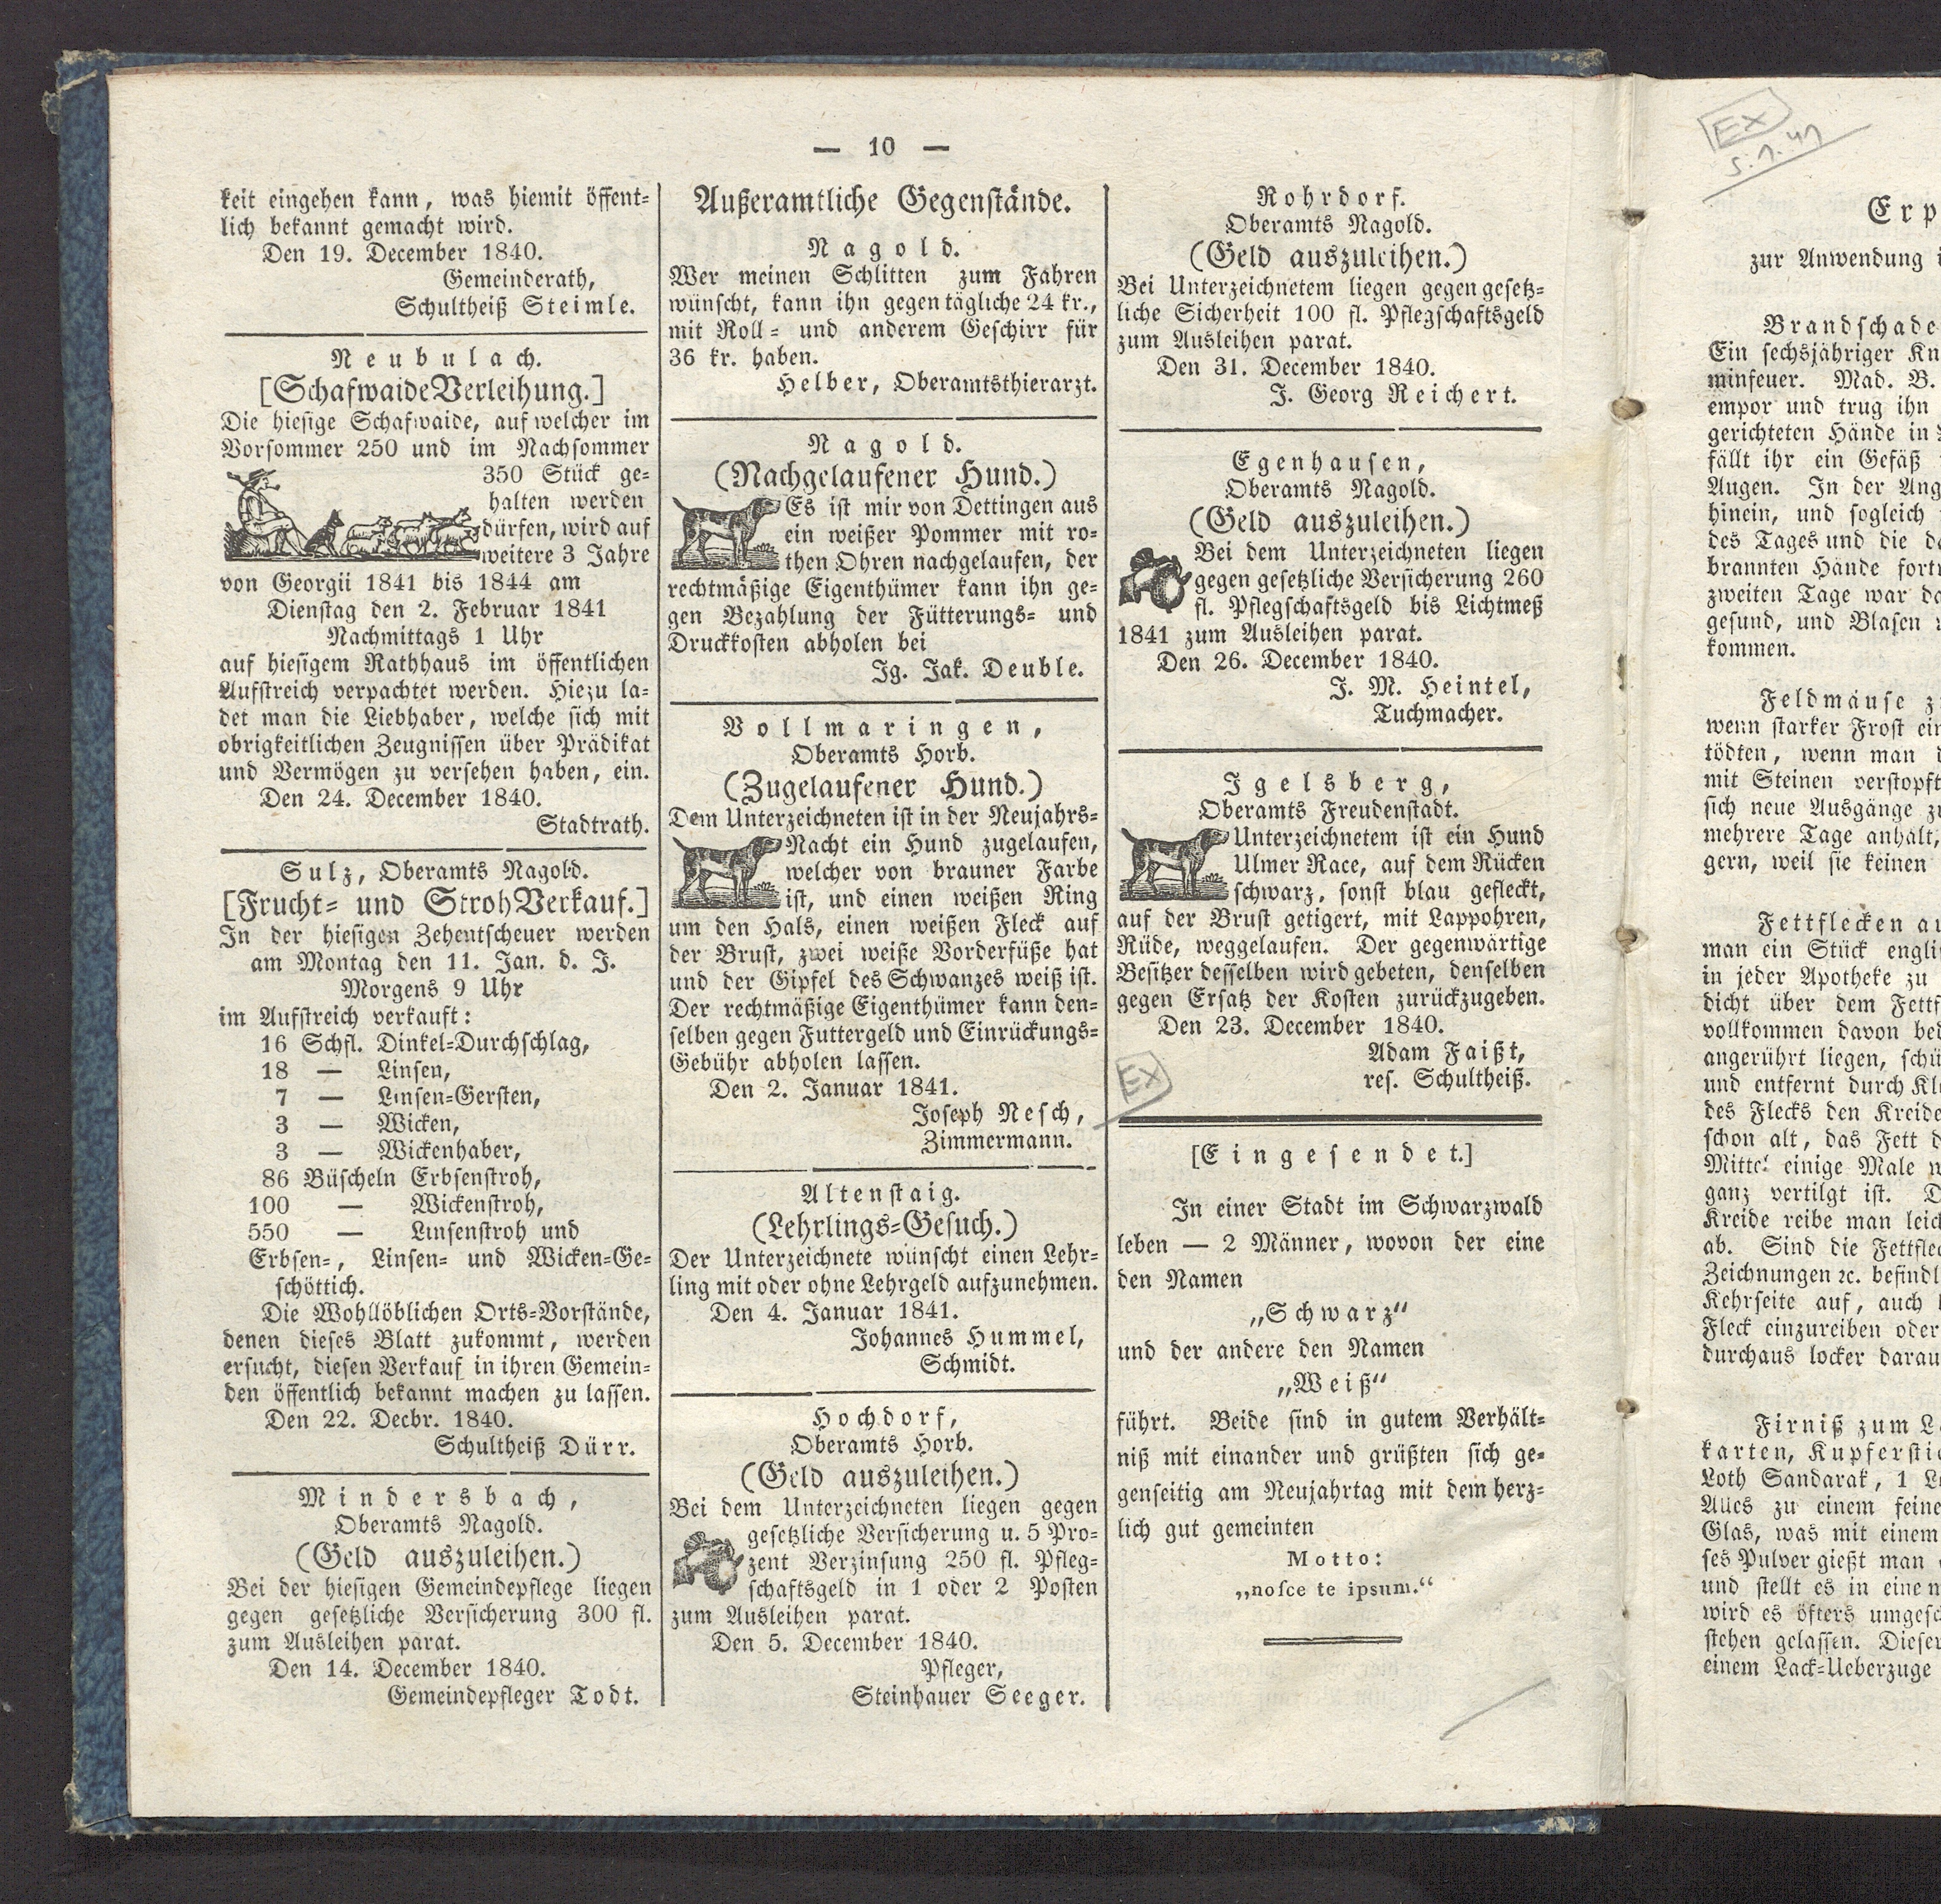 — 10 —
keit eingehen kann, was hiemit öffent-
lich bekannt gemacht wird.
Den 19. December 1840.
Gemeinderath,
Schultheiß Steimle.
Neubulach.
[SchafwaideVerleihung.]
Die hiesige Schafwaide, auf welcher im
Vorsommer 250 und im Nachsommer
350 Stück ge-
halten werden
dürfen, wird auf
weitere 3 Jahre
von Georgii 1841 bis 1844 am
Dienstag den 2. Februar 1841
Nachmittags 1 Uhr
auf hiesigem Rathhaus im öffentlichen
Aufstreich verpachtet werden. Hiezu la-
det man die Liebhaber, welche sich mit
obrigkeitlichen Zeugnissen über Prädikat
und Vermögen zu versehen haben, ein.
Den 24. December 1840.
Stadtrath.
Sulz, Oberamts Nagold.
[Frucht- und StrohVerkauf.]
In der hiesigen Zehentscheuer werden
am Montag den 11. Jan. d. J.
Morgens 9 Uhr
im Aufstreich verkauft:
16 Schfl. Dinkel-Durchschlag,
18 — Linsen,
7 — Linsen-Gersten,
3 — Wicken,
3 — Wickenhaber,
86 Büscheln Erbsenstroh,
100 — Wickenstroh,
550 — Linsenstroh und
Erbsen-, Linsen- und Wicken-Ge-
schöttich.
Die Wohllöblichen Orts-Vorstände,
denen dieses Blatt zukommt, werden
ersucht, diesen Verkauf in ihren Gemein-
den öffentlich bekannt machen zu lassen.
Den 22. Decbr. 1840.
Schultheiß Dürr.
Mindersbach,
Oberamts Nagold.
(Geld auszuleihen.)
Bei der hiesigen Gemeindepflege liegen
gegen gesetzliche Versicherung 300 fl.
zum Ausleihen parat.
Den 14. December 1840.
Gemeindepfleger Todt.
Außeramtliche Gegenstände.
Nagold.
Wer meinen Schlitten zum Fahren
wünscht, kann ihn gegen tägliche 24 kr.,
mit Roll- und anderem Geschirr für
36 kr. haben.
Helber, Oberamtsthierarzt.
Nagold.
(Nachgelaufener Hund.)
Es ist mir von Dettingen aus
ein weißer Pommer mit ro-
then Ohren nachgelaufen, der
rechtmäßige Eigenthümer kann ihn ge-
gen Bezahlung der Fütterungs- und
Druckkosten abholen bei
Jg. Jak. Deuble.
Vollmaringen,
Oberamts Horb.
(Zugelaufener Hund.)
Dem Unterzeichneten ist in der Neujahrs-
Nacht ein Hund zugelaufen,
welcher von brauner Farbe
ist, und einen weißen Ring
um den Hals, einen weißen Fleck auf
der Brust, zwei weiße Vorderfüße hat
und der Gipfel des Schwanzes weiß ist.
Der rechtmäßige Eigenthümer kann den-
selben gegen Futtergeld und Einrückungs-
Gebühr abholen lassen.
Den 2. Januar 1841.
Joseph Nesch,
Zimmermann.
Altenstaig.
(Lehrlings-Gesuch.)
Der Unterzeichnete wünscht einen Lehr-
ling mit oder ohne Lehrgeld aufzunehmen.
Den 4. Januar 1841.
Johannes Hummel,
Schmidt.
Hochdorf,
Oberamts Horb.
(Geld auszuleihen.)
Bei dem Unterzeichneten liegen gegen
gesetzliche Versicherung u. 5 Pro-
zent Verzinsung 250 fl. Pfleg-
schaftsgeld in 1 oder 2 Posten
zum Ausleihen parat.
Den 5. December 1840.
Pfleger,
Steinhauer Seeger.
Rohrdorf.
Oberamts Nagold.
(Geld auszuleihen.)
Bei Unterzeichnetem liegen gegen gesetz-
liche Sicherheit 100 fl. Pflegschaftsgeld
zum Ausleihen parat.
Den 31. December 1840.
J. Georg Reichert.
Egenhausen,
Oberamts Nagold.
(Geld auszuleihen.)
Bei dem Unterzeichneten liegen
gegen gesetzliche Versicherung 260
fl. Pflegschaftsgeld bis Lichtmeß
1841 zum Ausleihen parat.
Den 26. December 1840.
J. M. Heintel,
Tuchmacher.
Igelsberg,
Oberamts Freudenstadt.
Unterzeichnetem ist ein Hund
Ulmer Race, auf dem Rücken
schwarz, sonst blau gefleckt,
auf der Brust getigert, mit Lappohren,
Rüde, weggelaufen. Der gegenwärtige
Besitzer desselben wird gebeten, denselben
gegen Ersatz der Kosten zurückzugeben.
Den 23. December 1840.
Adam Faißt,
res. Schultheiß.
EX
[Eingesendet.]
In einer Stadt im Schwarzwald
leben — 2 Männer, wovon der eine
den Namen
„Schwarz“
und der andere den Namen
„Weiß“
führt. Beide sind in gutem Verhält-
niß mit einander und grüßten sich ge-
genseitig am Neujahrtag mit dem herz-
lich gut gemeinten
Motto:
„nosce te ipsum.“
EX
5.1.41
Erp
zur Anwendung i
Brandschade
Ein sechsjähriger Kn
minfeuer. Mad. B.
empor und trug ihn
gerichteten Hände in
fällt ihr ein Gefäß
Augen. In der Ang
hinein, und sogleich
des Tages und die da
brannten Hände fort
zweiten Tage war da
gesund, und Blasen
kommen.
Feldmäuse z
wenn starker Frost ein
tödten, wenn man d
mit Steinen verstopft
sich neue Ausgänge zu
mehrere Tage anhält,
gern, weil sie keinen
Fettflecken au
man ein Stück englis
in jeder Apotheke zu
dicht über dem Fettf
vollkommen davon bed
angerührt liegen, schü
und entfernt durch Kl
des Flecks den Kreide
schon alt, das Fett d
Mittel einige Male w
ganz vertilgt ist. D
Kreide reibe man leich
ab. Sind die Fettflec
Zeichnungen ꝛc. befindl
Kehrseite auf, auch
Fleck einzureiben oder
durchaus locker darau
Firniß zum La
karten, Kupferstic
Loth Sandarak, 1 L
Alles zu einem feine
Glas, was mit einem
ses Pulver gießt man
und stellt es in einem
wird es öfters umgesc
stehen gelassen. Dieser
einem Lack-Ueberzuge